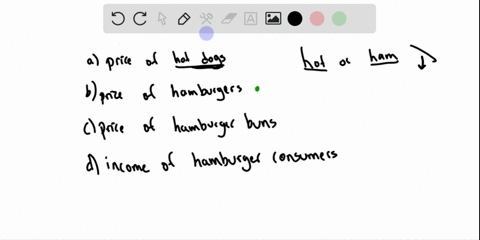 a) price of hot dogs
hot or ham
b) price of hamburgers
c) price of hamburger buns
d) income of hamburger consumers